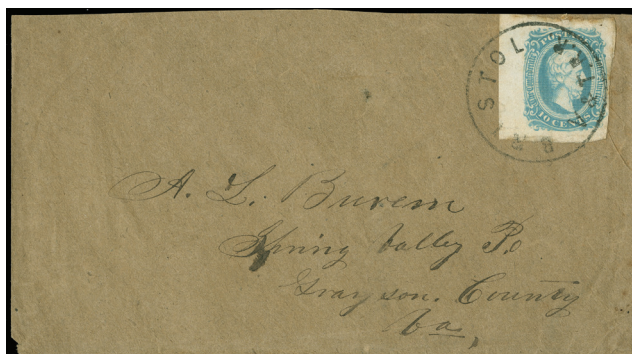 BRISTOL VA & TEN
POSTAGE
10 CENTS
A. L. Burem
Spring Valley P.o
Grayson. County
Va,